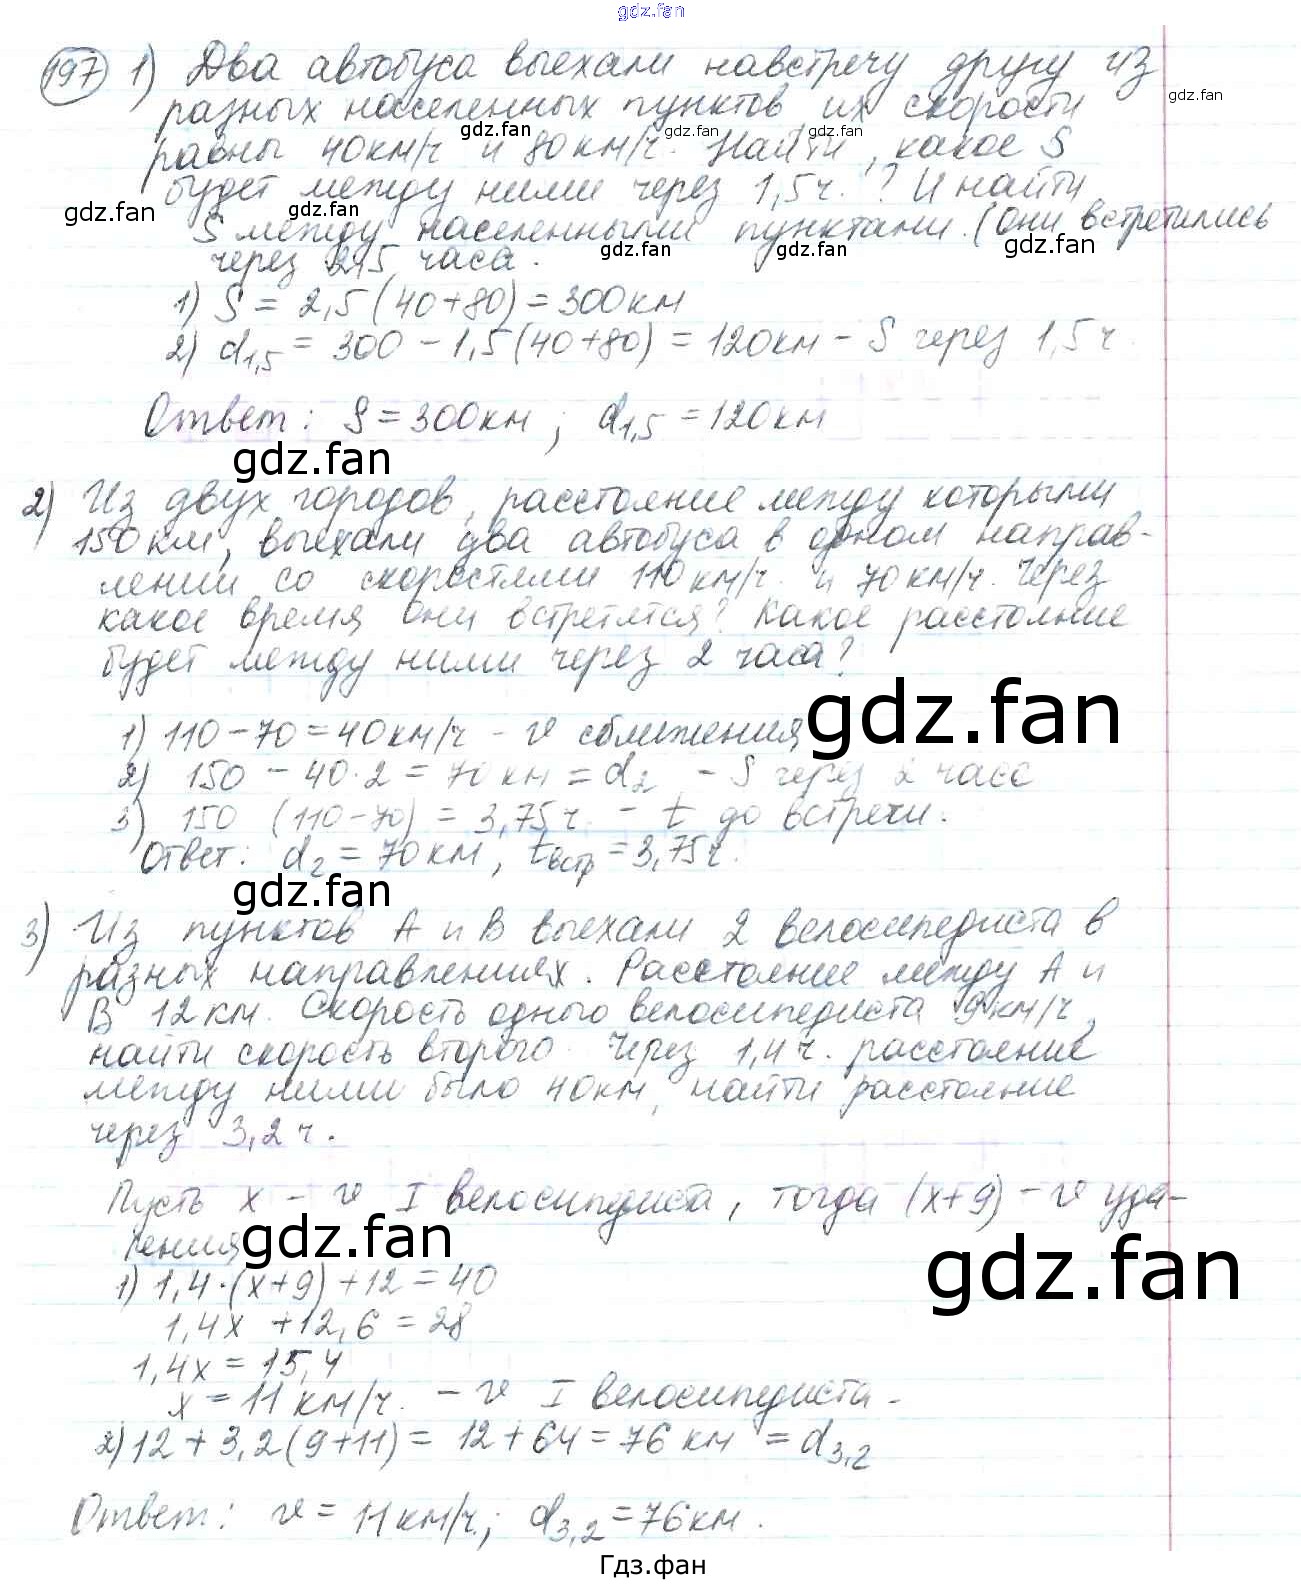 gdz.fan
197 1) Два автобуса выехали навстречу другу из
gdz.fan
разных населенных пунктов их скорости
gdz.fan gdz.fan gdz.fan
равны 40км/ч и 80км/ч. Найти, какое S
будет между ними через 1,5ч.? И найти
gdz.fan gdz.fan
S между населенными пунктами. (они встретились
gdz.fan gdz.fan
через 2,5 часа.
1) S = 2,5(40+80) = 300км
2) d1,5 = 300 - 1,5(40+80) = 120км - S через 1,5ч.
Ответ: S = 300км; d1,5 = 120км
gdz.fan
2) Из двух городов, расстояние между которыми
150км, выехали два автобуса в одном направ-
лении со скоростями 110км/ч. и 70км/ч. Через
какое время они встретятся? Какое расстояние
будет между ними через 2 часа?
gdz.fan
1) 110-70=40км/ч - v сближения
2) 150 - 40·2 = 70км = d2 - S через 2 часс
3) 150 (110-70) = 3,75ч. - t до встречи.
Ответ: d2 = 70км, tвстр = 3,75ч.
gdz.fan
3) Из пунктов А и В выехали 2 велосипедиста в
разных направлениях. Расстояние между А и
В 12км. Скорость одного велосипедиста 9км/ч,
найти скорость второго. Через 1,4ч. расстояние
между ними было 40км, найти расстояние
через 3,2ч.
Пусть x - v I велосипедиста, тогда (x+9) - v уда-
ления
gdz.fan
gdz.fan
1) 1,4·(x+9)+12=40
1,4x +12,6 = 28
1,4x = 15,4
x = 11км/ч. - v I велосипедиста.
2) 12 + 3,2(9+11) = 12+64 = 76км = d3,2
Ответ: v = 11км/ч; d3,2 = 76км.
Гдз.фан